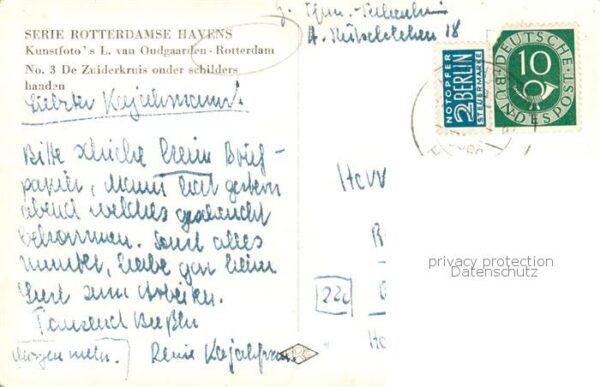 SERIE ROTTERDAMSE HAVENS
Kunstfoto's L. van Oudgaarden - Rotterdam
No. 3 De Zuiderkruis onder schilders
handen
Liebster
Bitte schicke kein Brief-
papier, Mama hat gestern
abend welches geschenkt
bekommen. Sonst alles
munter, habe gar keine
Lust zum Arbeiten.
Tausend Bussln
Deine
Morgen mehr.
18
NOTOPFER
2 BERLIN
STEUERMARKE
DEUTSCHE
BUNDESPOST
10
22c
privacy protection
Datenschutz